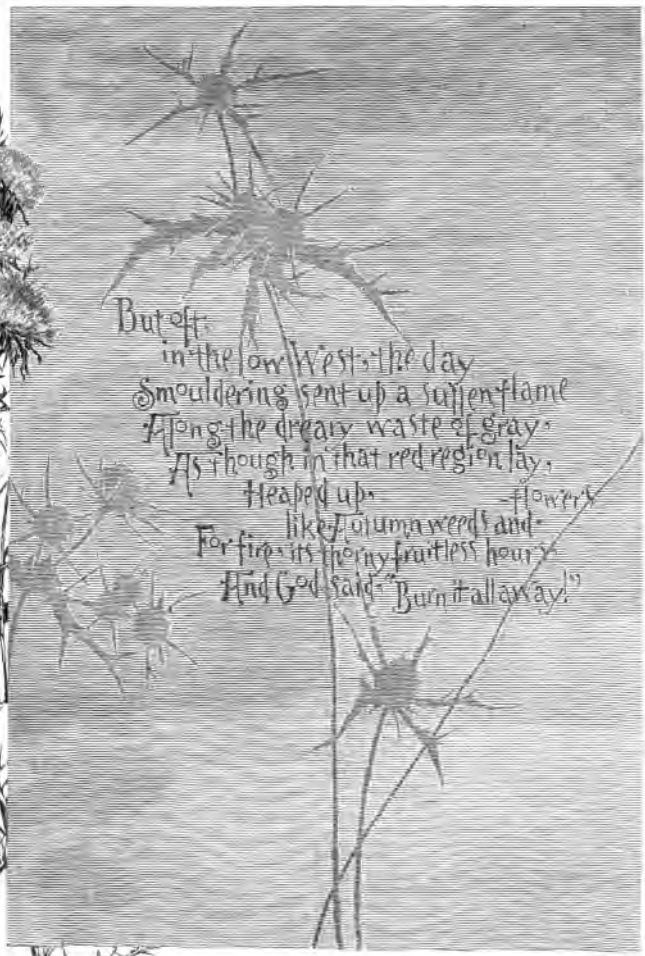 But oft·
in·the low West, the day
Smouldering sent up a sullen flame
Along·the dreary waste of gray·
As though in that red region lay,
Heaped up· -flowers
like Autumn weeds and·
For fire, its thorny fruitless hours·
And God said·"Burn it all away!"